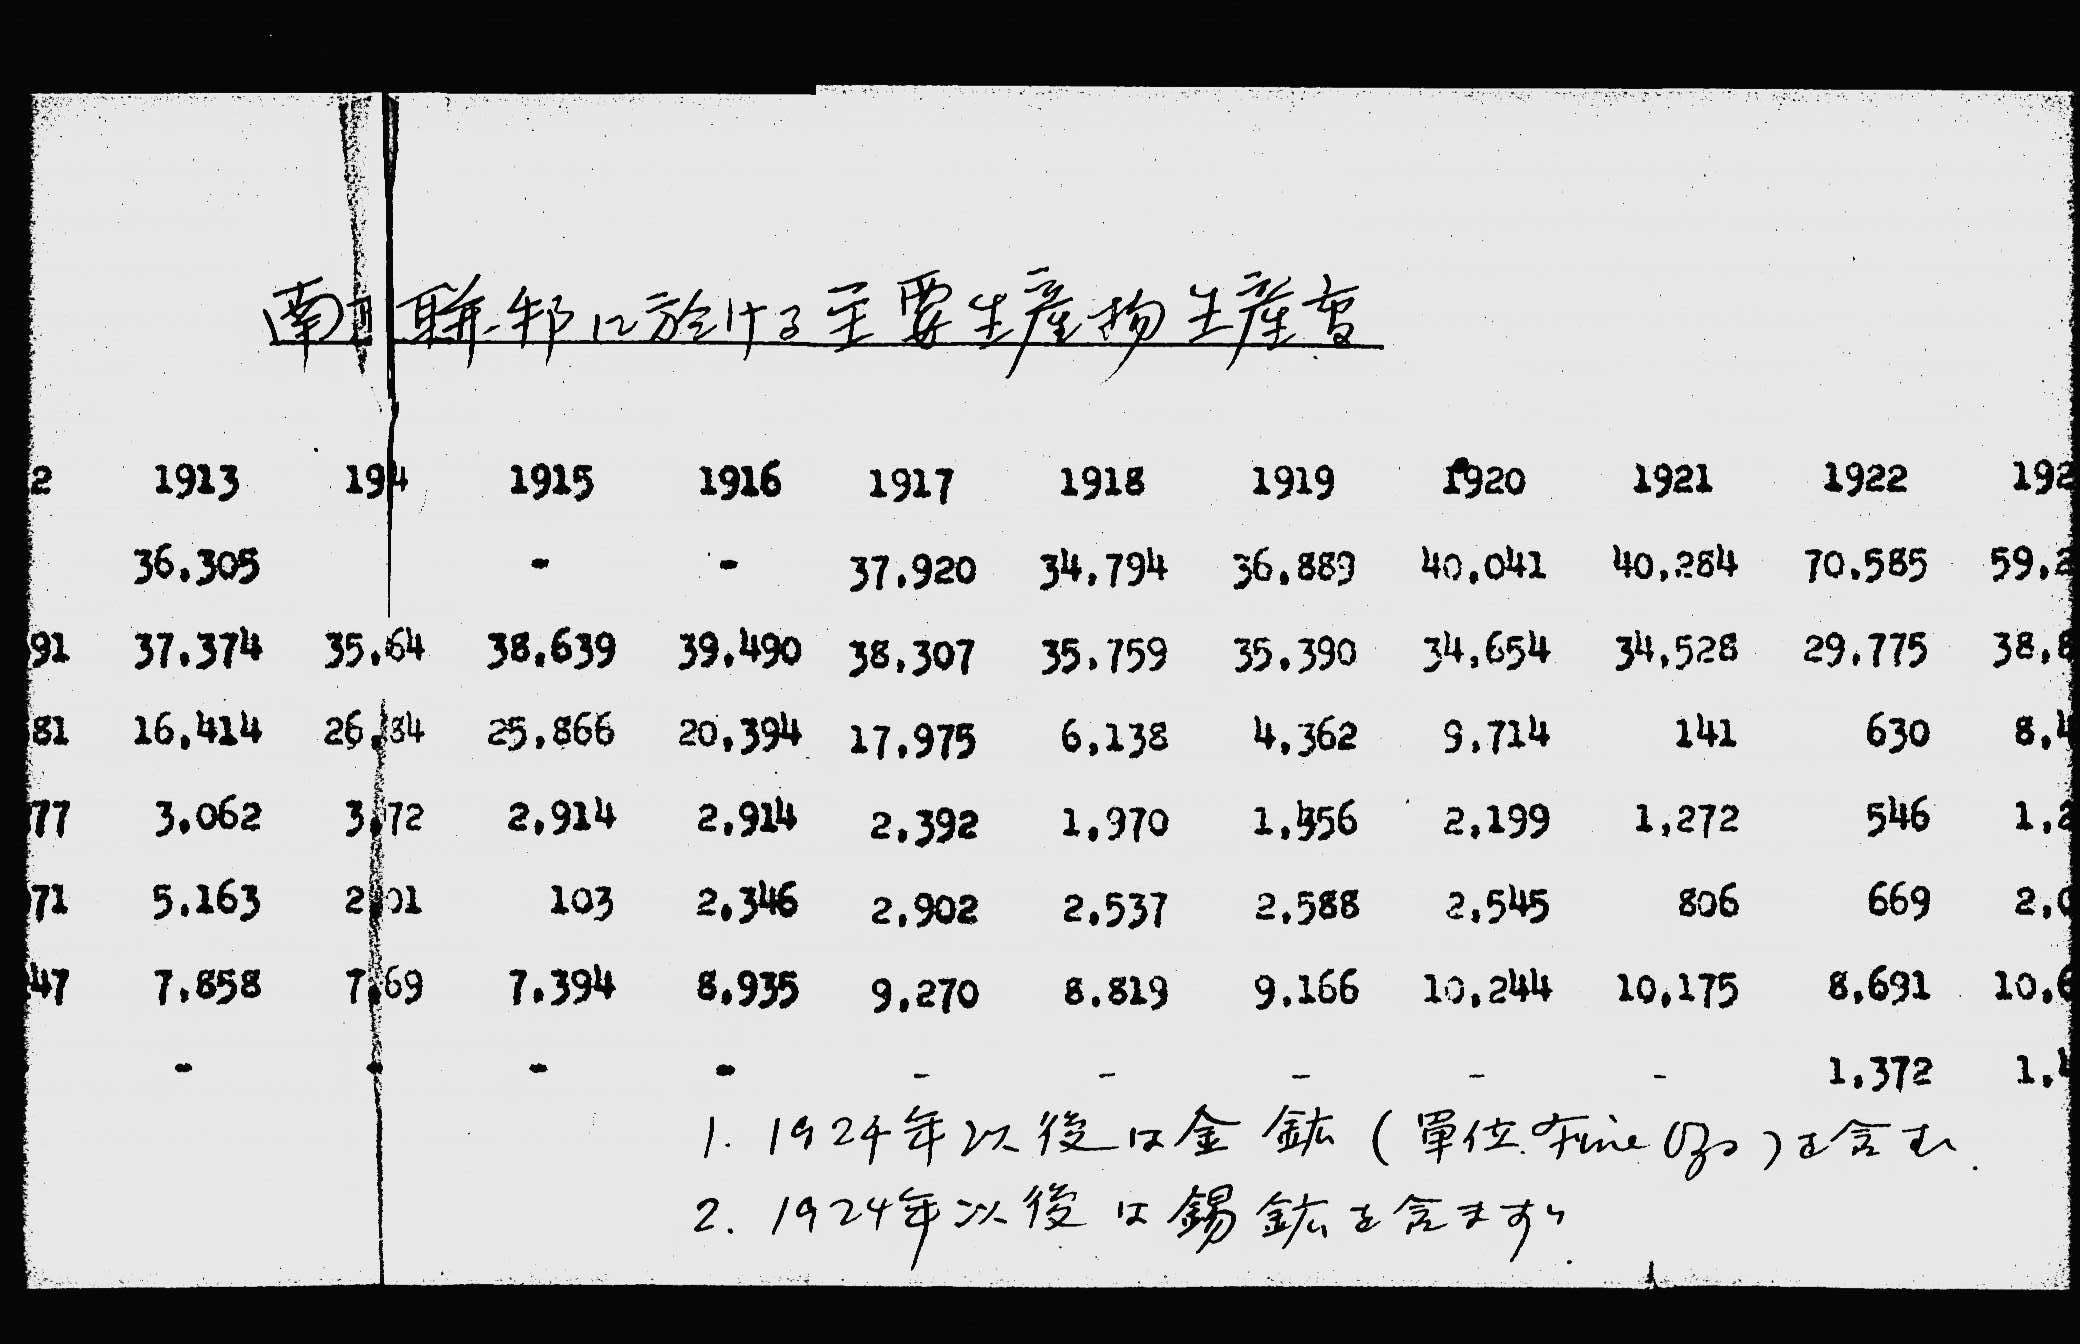 南 聯邦に於ける主要生産物生産高
2 1913 1914 1915 1916 1917 1918 1919 1920 1921 1922 192
36.305 - - 37.920 34.794 36.889 40.041 40.284 70.585 59.2
91 37.374 35. 64 38.639 39.490 38.307 35.759 35.390 34.654 34.528 29.775 38.8
81 16.414 26. 84 25.866 20.394 17.975 6.138 4.362 9.714 141 630 8.4
77 3.062 3. 72 2.914 2.914 2.392 1.970 1.956 2.199 1.272 546 1.2
71 5.163 2. 01 103 2.346 2.902 2.537 2.588 2.545 806 669 2.0
47 7.858 7. 69 7.394 8.935 9.270 8.819 9.166 10.244 10.175 8.691 10.6
- - - - - - - - - 1.372 1.4
1. 1924年以後は金鉱(單位.Fine Ozs)を含む.
2. 1924年以後は錫鉱を含ます.